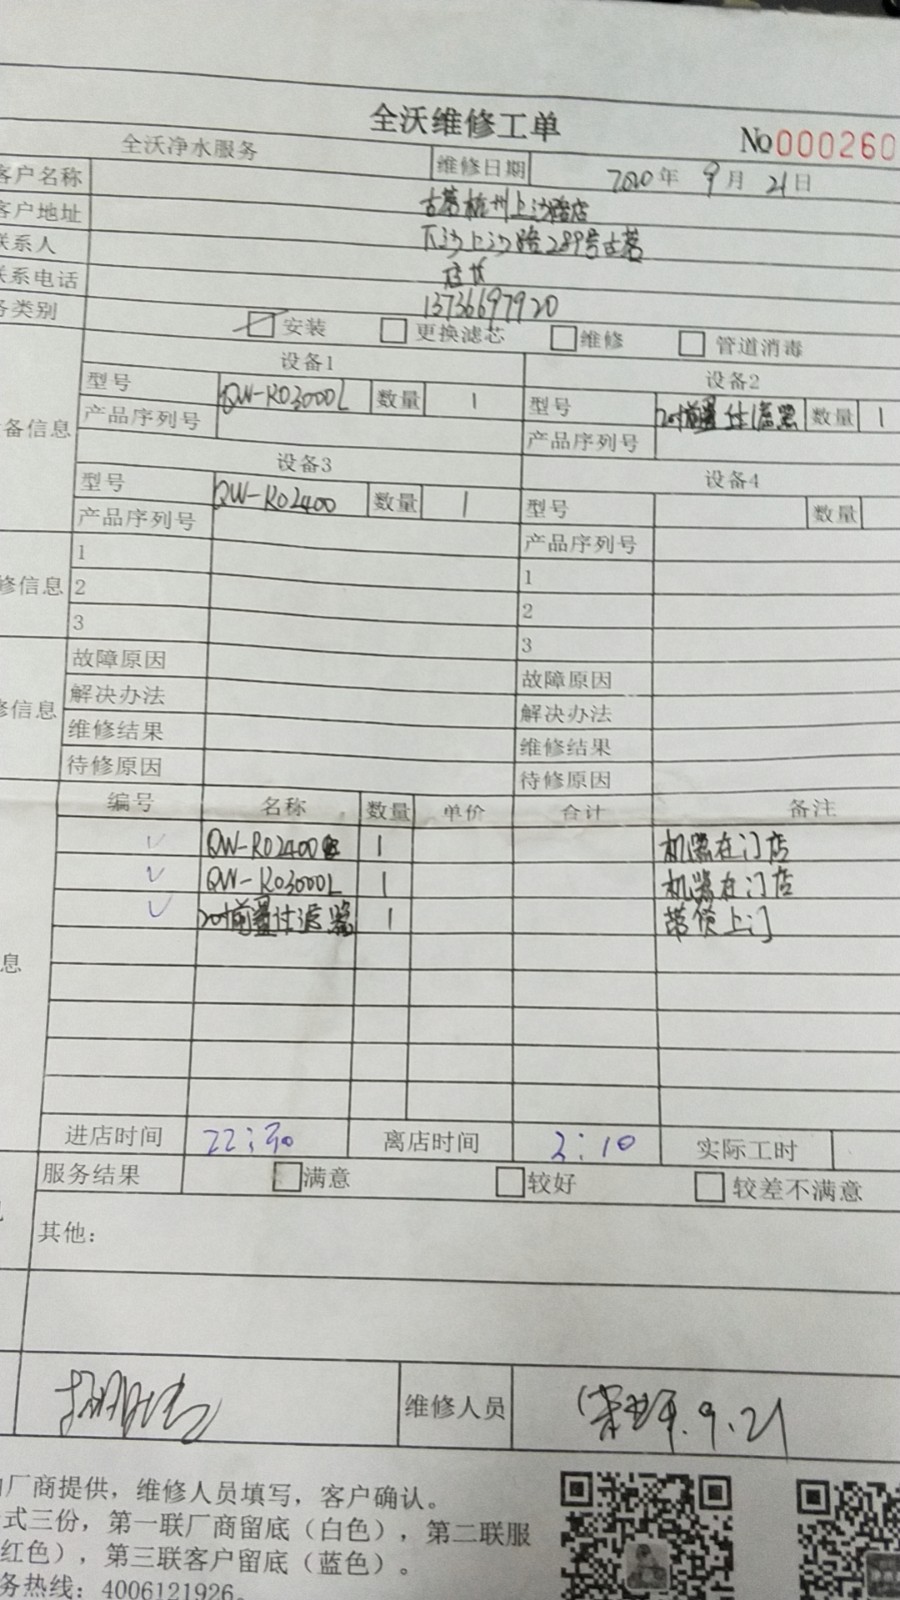 全沃维修工单
No 000260
全沃净水服务 维修日期 2020年 9月 21日
客户名称 古茗杭州上沙路店
客户地址 下沙上沙路289号古茗
联系人 店长
联系电话 13736697920
务类别 安装 更换滤芯 维修 管道消毒
设备1 设备2
型号 QW-RO3000L 数量 1 型号 20寸前置过滤器 数量 1
产品序列号 产品序列号
备信息
设备3 设备4
型号 QW-RO2400 数量 1 型号 数量
产品序列号 产品序列号
修信息
1 1
2 2
3 3
修信息
故障原因 故障原因
解决办法 解决办法
维修结果 维修结果
待修原因 待修原因
编号 名称 数量 单价 合计 备注
✓ QW-RO2400 1 机器在门店
✓ QW-RO3000L 1 机器在门店
✓ 20寸前置过滤器 1 带货上门
息
进店时间 22:30 离店时间 2:10 实际工时
服务结果 满意 较好 较差不满意
其他：
维修人员 9.21
由厂商提供，维修人员填写，客户确认。
式三份，第一联厂商留底（白色），第二联服
红色），第三联客户留底（蓝色）。
务热线：4006121926。